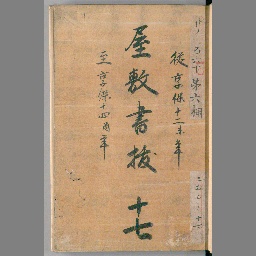 第六輯
従享保十二未年
屋敷書抜 十七
至享保十四酉年